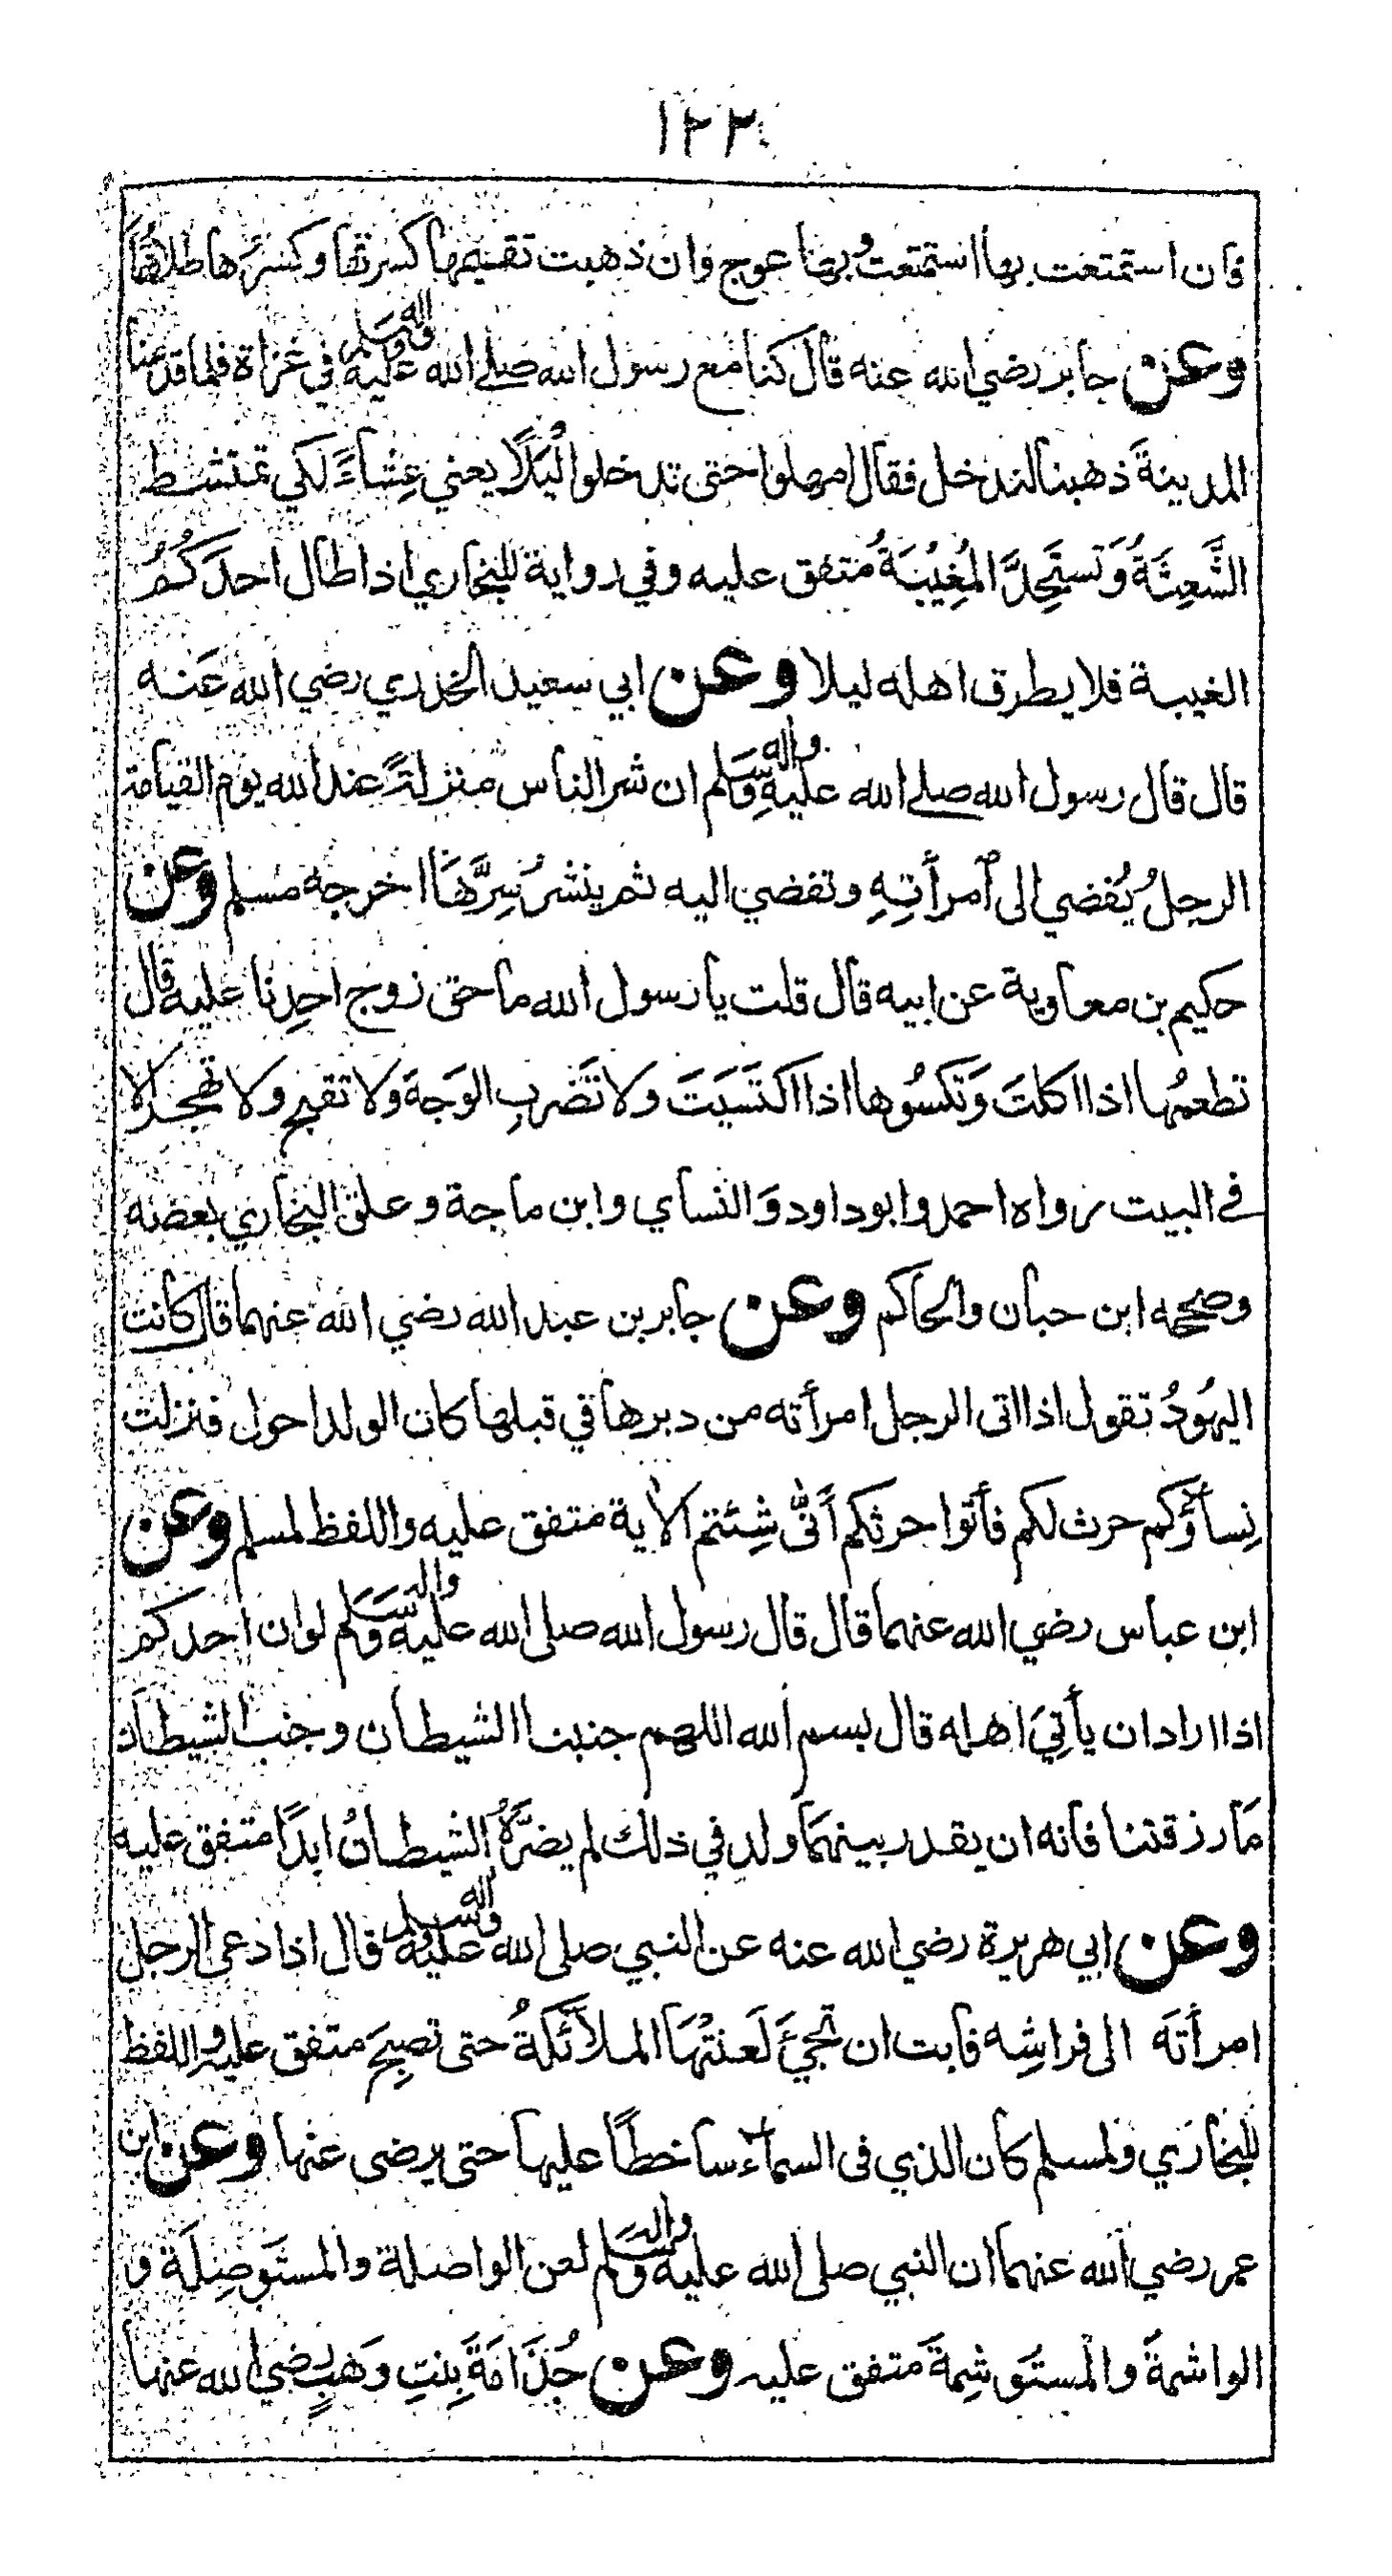 ١٢٣
فان استمتعت بها استمتعت وبها عوج وان ذهبت تقيمها كسرتها وكسرها طلاقها
وعن جابر رضي الله عنه قال كنا مع رسول الله صلى الله عليه واله وسلم في غزاة فلما قدمنا
المدينة ذهبنا لندخل فقال امهلوا حتى تدخلوا ليلًا يعني عِشاءً لكي تمتشط
الشَّعِثَةُ وَتَستَحِدَّ المُغِيْبَةُ متفق عليه وفي رواية للبخاري اذا طال احدَكُمُ
الغيبة فلا يطرق اهله ليلا وعن ابي سعيد الخدري رضي الله عَنه
قال قال رسول الله صلى الله عليه واله وسلم ان شر الناس منزلةً عند الله يوم القيامة
الرجلُ يُفضي الى امرأتِهِ وتفضي اليه ثم ينشرُ سِرَّهَا اخرجه مسلم وعن
حكيم بن معاوية عن ابيه قال قلت يا رسول الله ما حق زوج احدِنا عليه قال
تطعمُها اذا اكلتَ وَتكسُوها اذا اكتَسَيَتَ ولا تَضَربِ الوَجهَ ولا تقبح ولا تهجر الا
في البيت رواه احمد وابوداود وَالنساي وابن ماجة وعلق البخاري بعضه
وصححه ابن حبان والحاكم وعن جابر بن عبد الله رضي الله عنهما قال كانت
اليهُودُ تقول اذا اتى الرجل امرأته من دبرها في قبلها كان الولد احول فنزلت
نِساؤكم حرث لكم فأتوا حرثكم أَنّى شِئتم الاية متفق عليه واللفظ لمسلم وعن
ابن عباس رضي الله عنهما قال قال رسول الله صلى الله عليه واله وسلم لو ان احدكم
اذا اراد ان يأتيَ اهله قال بسم الله اللهم جنبنا الشيطان وجنب الشيطان
مَا رزقتنا فانه ان يقدر بينهما ولد في ذلك لم يضرَّهُ الشيطانُ ابدًا متفق عليه
وعن ابي هريرة رضي الله عنه عن النبي صلى الله عليه واله وسلم قال اذا دعى الرجل
امرأتَه الى فراشِه فابت ان تجيءَ لَعنتْهَا الملآئكةُ حتى تصبِحَ متفق عليه واللفظ
للبخاري ولمسلم كان الذي في السماء ساخطًا عليها حتى يرضى عنها وعن ابن
عمر رضي الله عنهما ان النبي صلى الله عليه واله وسلم لعن الواصلة والمستوصِلَة و
الواشمةَ والمستَوشِمةَ متفق عليه وعن جُذَامَةَ بِنتِ وَهبٍ رضي الله عنها